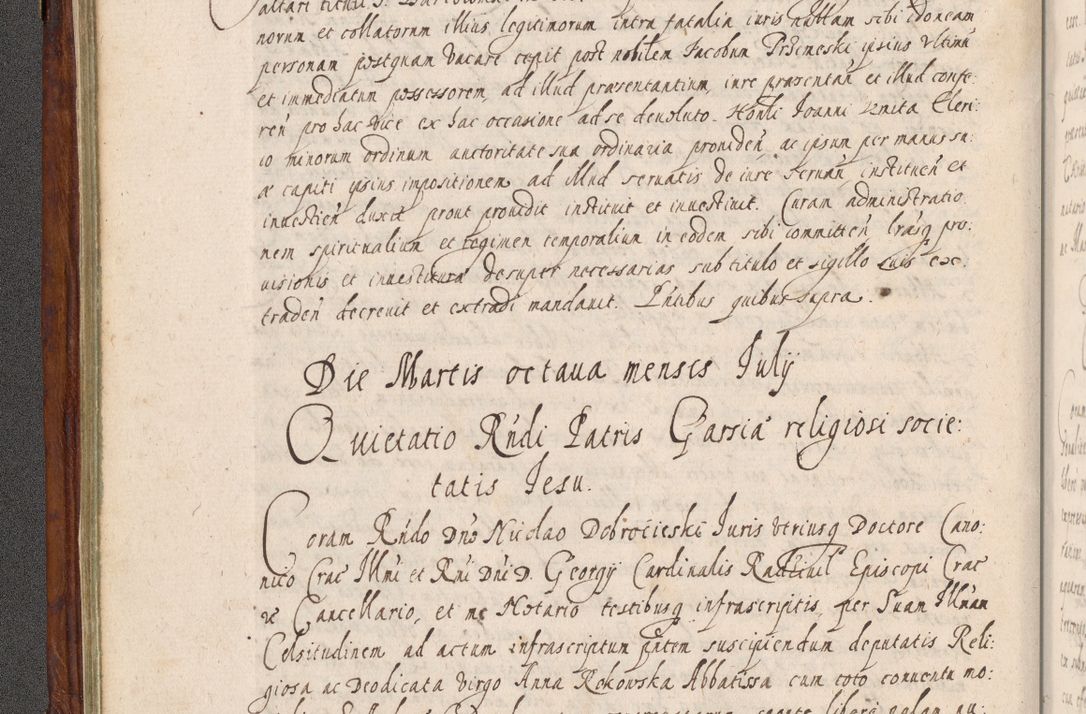 altari tituli S.
norum et collatorum illius legitimorum intra fatalia iuris nullam sibi idoneam
personam postquam vacare cepit post nobilem Jacobum Prziemeski ipsius vltimũ
et immediatum possessorem, ad illud praesentantium, iure praesentań et illud confe:
reń pro hac vice ex hac occasione ad se deuoluto. Honli Joanni Kmita Cleri:
co minorum ordinum auctoritate sua ordinaria prouideń ac ipsum per manus su:
æ capiti ipsius impositionem ad illud seruatis de iure seruań, instituеń et
inuestień duxit prout prouidit instituit et inuestiuit. Curam administratio
nem spiritualium et regimen temporalium in eodem sibi committeń lrasq pro:
uisionis et inuestitura desuper necessarias sub titulo et sigillo suis ex:
tradeń decreuit et extradi mandauit. Pntibus quibus supra.
Die Martis octaua mensis Julij
Quietatio Rńdi Patris Garsia religiosi socie:
tatis Jesu.
Coram Rńdo Dno Nicolao Dobrocieski Juris vtriusq Doctore Cano:
nico Crac Illmi et Rmi Dni D. Georgij Cardinalis Radziuil Episcopi Crac
Cancellario, et me Notario testibusq infrascriptis, per Suam Illmam
Celsitudinem ad actum infrascriptum pntem suscipiendum deputatis Reli:
giosa ac Deodicata virgo Anna Rokowska Abbatissa cum toto conuentu mo: